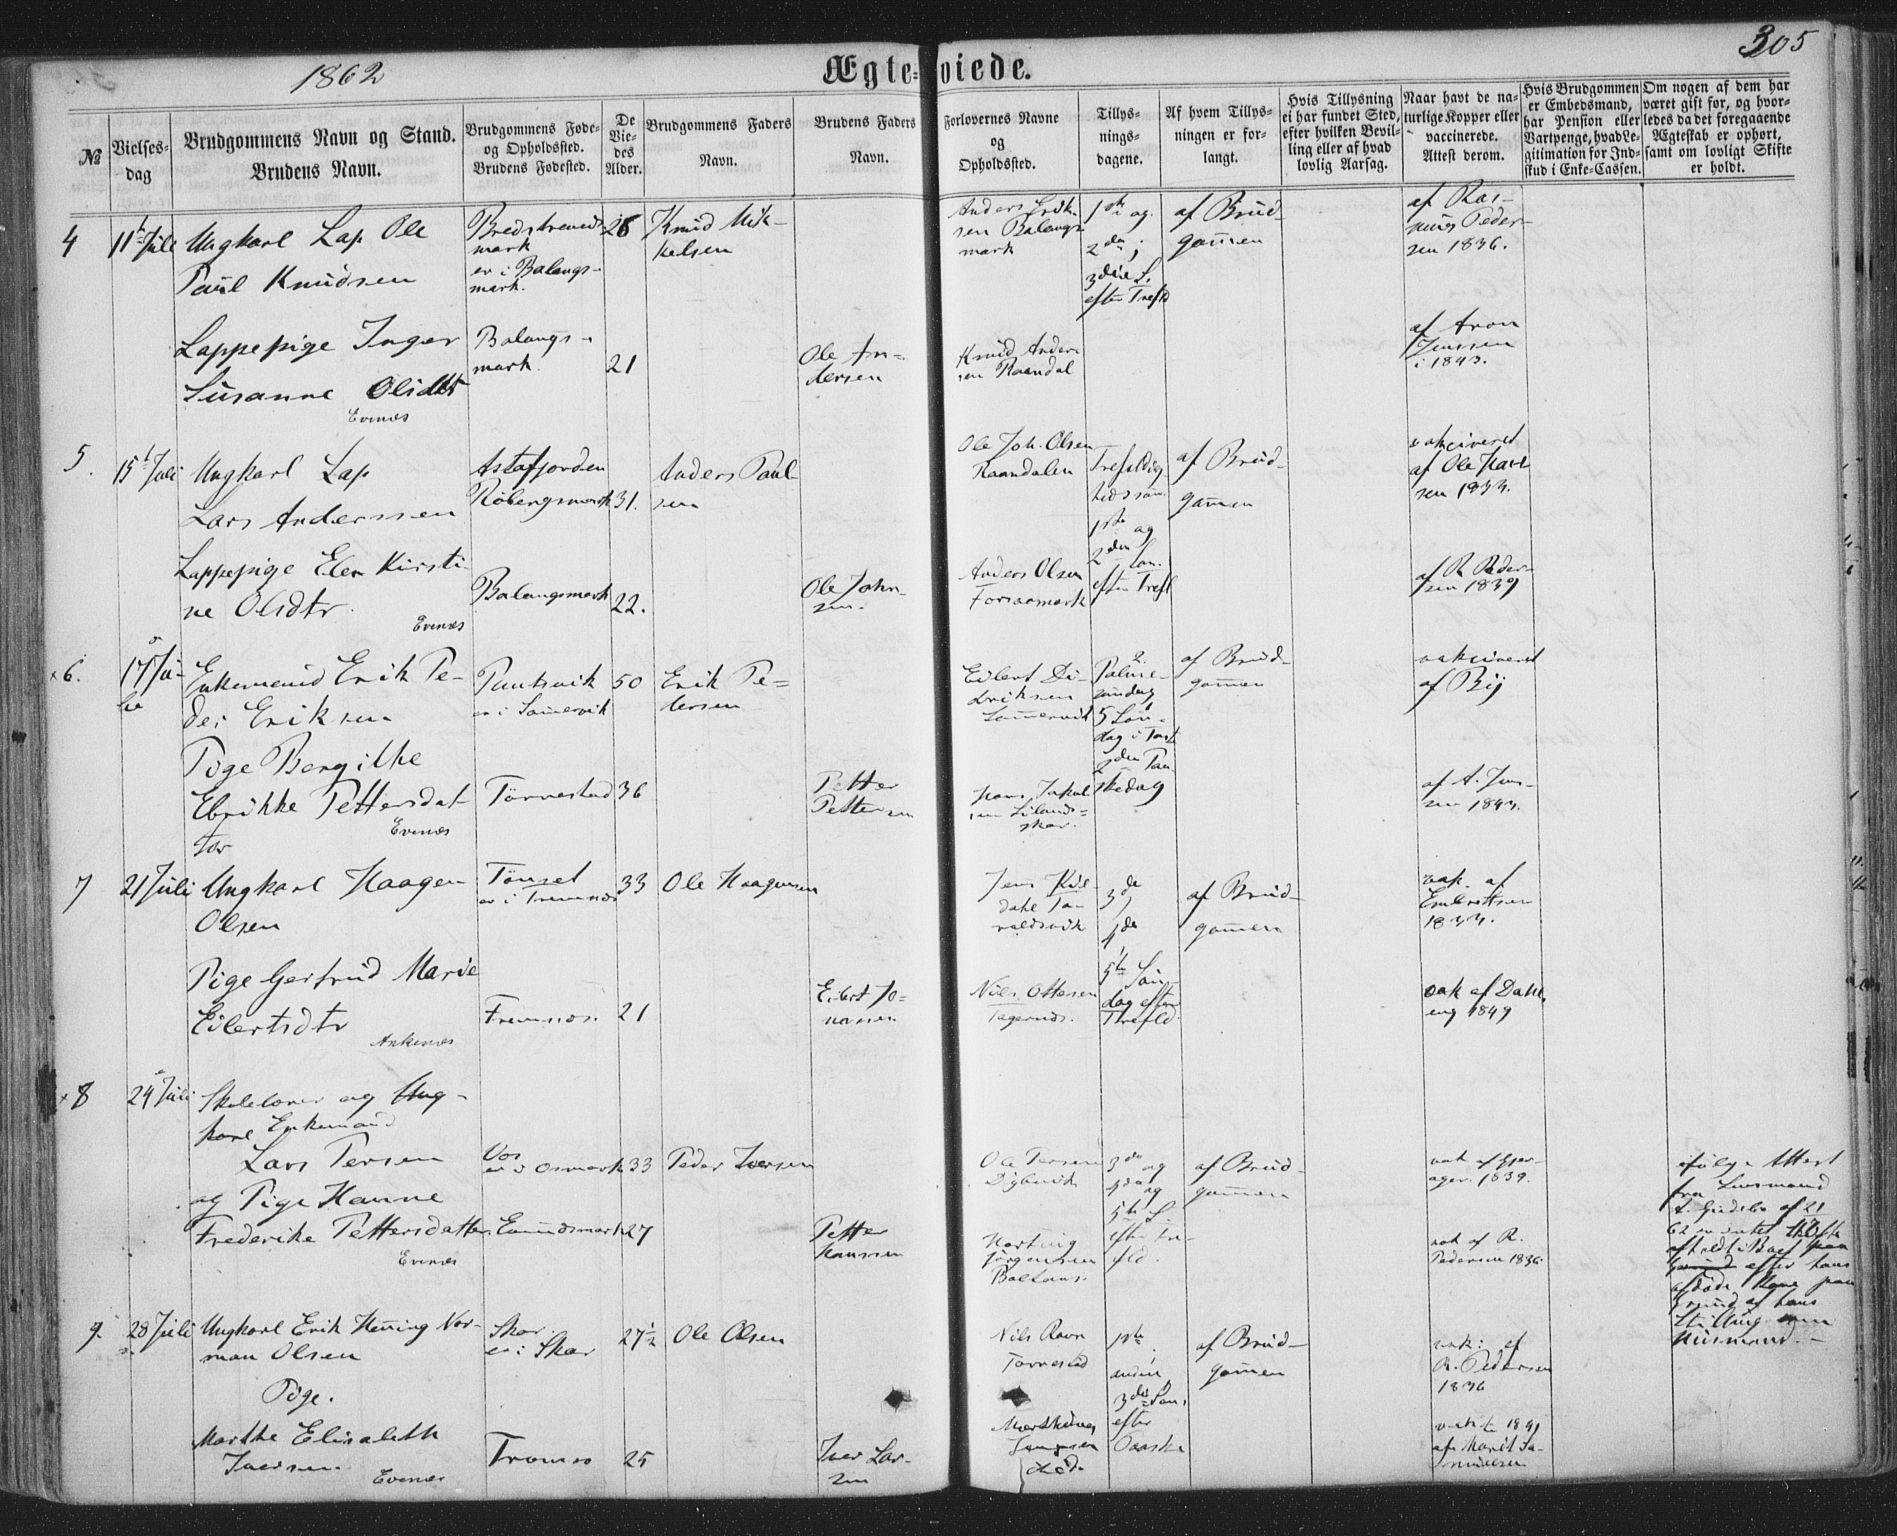 1862
Ægteviede.
305
№
Vielses-
dag
Brudgommens Navn og Stand.
Brudens Navn.
Brudgommens Føde-
og Opholdssted.
Brudens Fødested.
De
Vie-
des
Alder.
Brudgommens Faders
Navn.
Brudens Faders
Navn.
Forlovernes Navne
og
Opholdssted.
Tillys-
nings-
dagene.
Af hvem Tillys-
ningen er for-
langt.
Hvis Tillysning
ei har fundet Sted,
efter hvilken Bevil-
ling eller af hvad
lovlig Aarsag.
Naar havt de na-
turlige Kopper eller
vaccinerede.
Attest derom.
Hvis Brudgommen
er Embedsmand,
har Pension eller
Vartpenge, hvad Le-
gitimation for Ind-
skud i Enke-Cassen.
Om nogen af dem har
været gift før, og hvor-
ledes da det foregaaende
Ægteskab er ophørt,
samt om lovligt Skifte
er holdt.
4
11 Juli
Ungkarl Lap Ole
Paul Knudsen
mark
er i Balangs-
mark.
26
Knud Mik-
kelsen
Anders Erik-
sen Balangs-
mark
1ste og
2den
efter Trefd
af Brud-
gommen
af Ras-
mus Peder-
sen 1836.
Lappepige Inger
Susanne Olsdtr
Evenæs
Balangs-
mark.
21
Ole An-
dersen
Knud Ander-
sen Raandal
af Aron
Jenssen
i 1843.
5.
15 Juli
Ungkarl Lap
Lars Anderssen
Astafjorden
Røbergsmark
31.
Anders Paul-
sen
Ole Joh. Olsen
Raandalen
Trefoldig-
1ste og
2den Søn.
efter Trefl
af Brud-
gommen
vakcineret
af Ole Karl
sen 1833.
Lappepige Elen Kirsti-
ne Olsdtr.
Evenæs
Balangsmark
22.
Ole John-
sen.
Anders Olsen
Forsaamark
af R Peder-
sen 1839
6.
17 Ju-
li
Enkemand Erik Pe-
der Eriksen
er i Sommervik
50
Erik Pe-
dersen
Eilert Di-
driksen
Sommervik
Palme-
søndag
5 Søn-
dag i Fast
2den Paa-
skedag
af Brud-
gommen
vakcineret
af Bij
Pige Bergithe
Ebrikke Pettersdat-
ter
Evenæs
Tørnestad
36
Petter
Pettersen
Hans Jakob
sen Lilands-
skar.
af A. Jens
sen 1843.
7
21 Juli
Ungkarl Haagen
Olsen
Tømset
er i Fremnæs
33
Ole Haagensen
Jens Kil-
dahl Ta-
raldsvik
3de
4de
5te Søn-
dag efter
Trefld.
af Brud-
gommen
vak. af
Embrettsen
1833.
Pige Gertrud Marie
Eilertsdtr
Ankenæs
Fremnæs.
21
Eilert Jo-
nassen
Nils Ottesen
Tagernæs.
vak af Dahl.
eng 1849
8
24 Juli
Skolelærer og Ung-
karl Enkemand
Lars Persen
Vos
er i Osmark
33
Peder Iversen
Ole Persen
3de og
4de og
5te S.
efter Tre-
fld.
af Brud-
gommen
1839.
og Pige Hanne
Frederike Pettersdatter
Evenæs
27
Petter
Hanssen
Hartvig
Jørgensen
vak af R.
Pedersen 1836
ifølge Attest
fra Lensmand
afholdt
efter hans
afdøde Kone
hans
Stilling som
Huusmand.
9.
28 Juli
Ungkarl Erik Hening Nor-
man Olsen
Skar
er i Skar
27½
Ole Olsen
Nils Ravn
Tornestad
1ste
anden
3die Søn.
efter
Paaske
af Brud-
gommen
vak: af
R. Pedersen
1836
Pige.
Marthe Elisabeth
Iversen
Evenæs
Tromsø
25
Iver Lar-
sen
vak. 1841
af Marit Sa-
muelsen